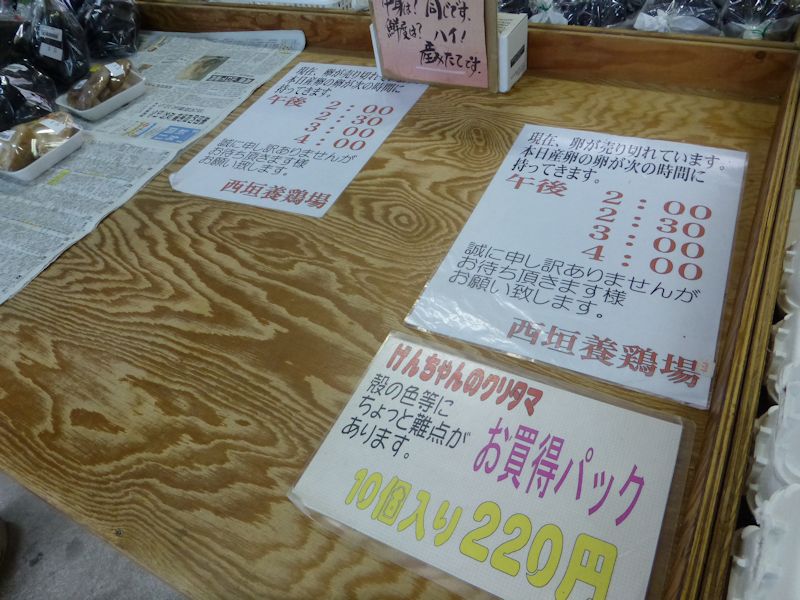 中身は？同じです。
鮮度は？ハイ！
産みたてです。
現在、卵が売り切れて
本日産卵の卵が次の時間に
持ってきます。
午後 2：00
2：30
3：00
4：00
誠に申し訳ありませんが
お待ち頂きます様
お願い致します。
西垣養鶏場
現在、卵が売り切れています。
本日産卵の卵が次の時間に
持ってきます。
午後 2：00
2：30
3：00
4：00
誠に申し訳ありませんが
お待ち頂きます様
お願い致します。
西垣養鶏場
けんちゃんのクリタマ
殻の色等に
ちょっと難点が
あります。
お買得パック
10個入り 220円